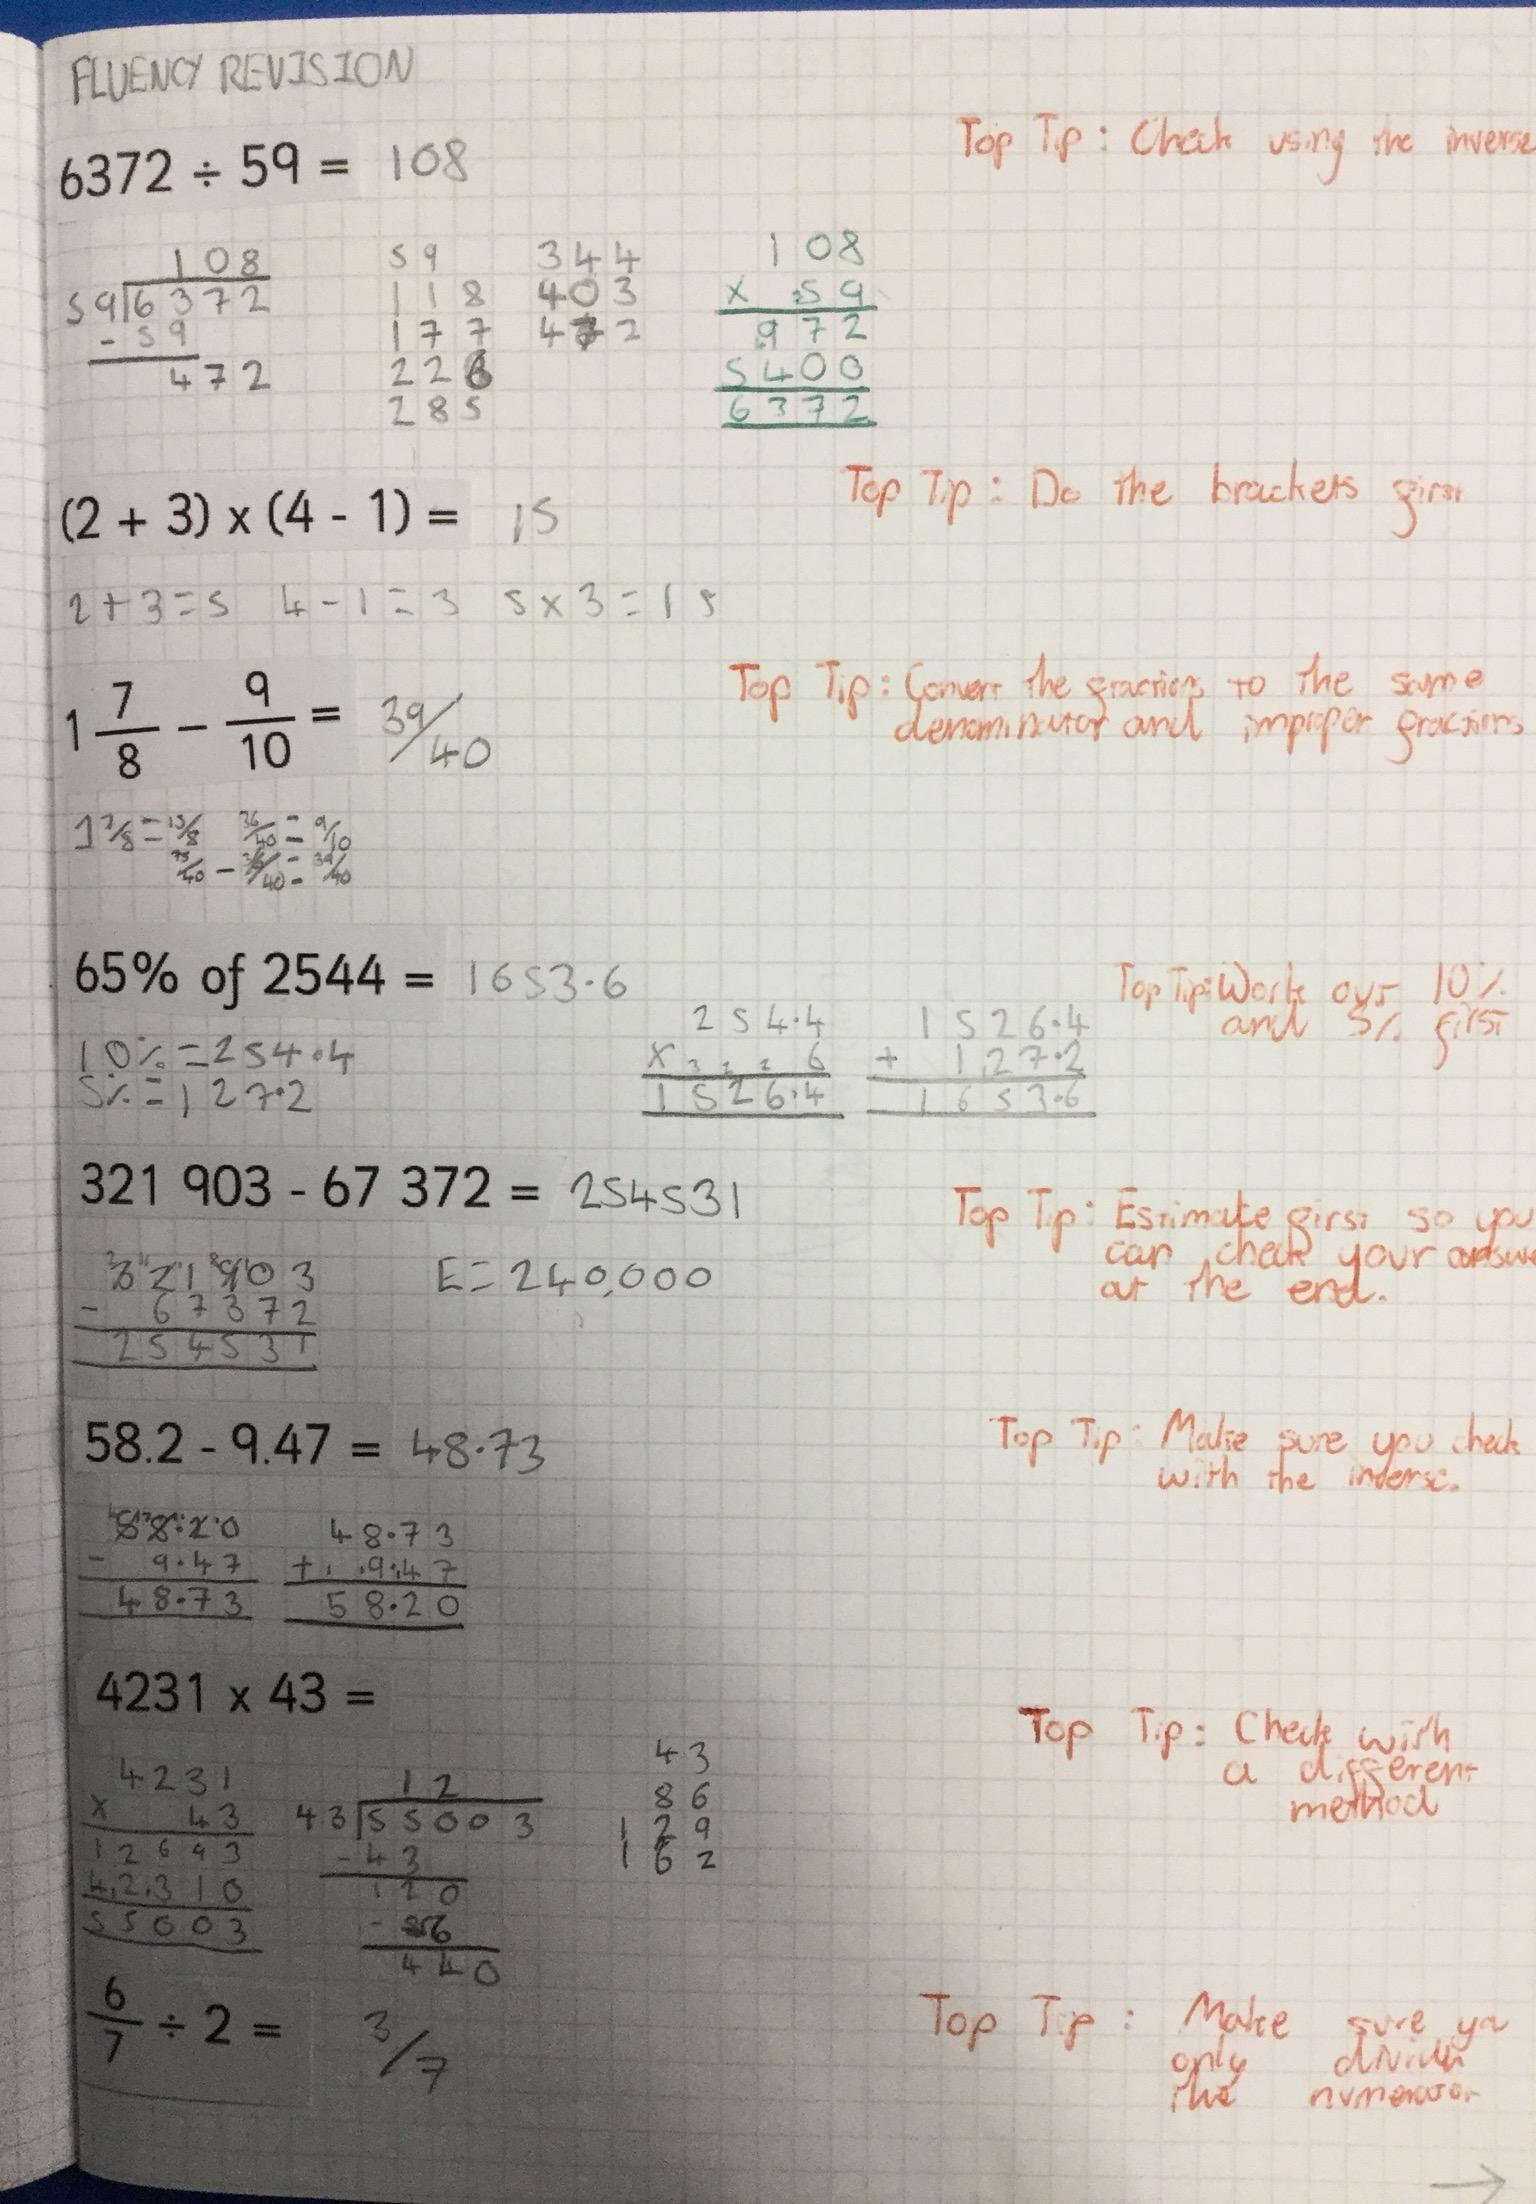 FLUENCY REVISION
Top Tip: Check using the inverse
6372 ÷ 59 = 108
108
59 6372
- 59
472
59
118
177
226
285
344
403
472
108
x 59
972
5400
6372
Top Tip: Do the brackets first
(2 + 3) x (4 - 1) = 15
2+3=5 4-1=3 5x3=15
Top Tip: Convert the fractions to the same
denominator and improper fractions
1 7/8 - 9/10 = 39/40
1 7/8 = 15/8 36/40 = 9/10
75/40 - 36/40 = 39/40
Top Tip: Work out 10%
and 5% first
65% of 2544 = 1653.6
10% = 254.4
5% = 127.2
254.4
x 6
1526.4
1526.4
+ 127.2
1653.6
Top Tip: Estimate first so you
can check your
at the end.
321 903 - 67 372 = 254531
E = 240,000
321903
- 67372
254531
Top Tip: Make sure you check
with the inverse.
58.2 - 9.47 = 48.73
58.20
- 9.47
48.73
48.73
+ 9.47
58.20
Top Tip: Check with
a different
method
4231 x 43 =
4231
x 43
12693
42310
55003
12
43 55003
- 43
120
- 86
440
43
86
129
162
Top Tip: Make sure you
only divide
the numerator
6/7 ÷ 2 = 3/7
→